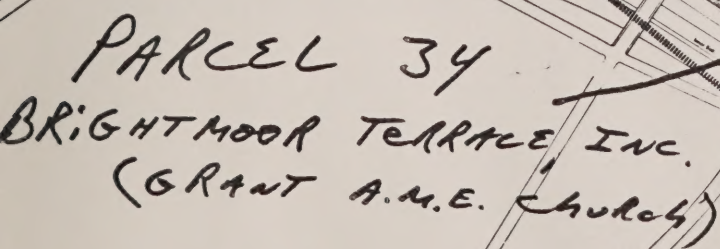 PARCEL 34
BRiGHTMOOR TeRRACE, INC.
(GRANT A.M.E. ChURCh)